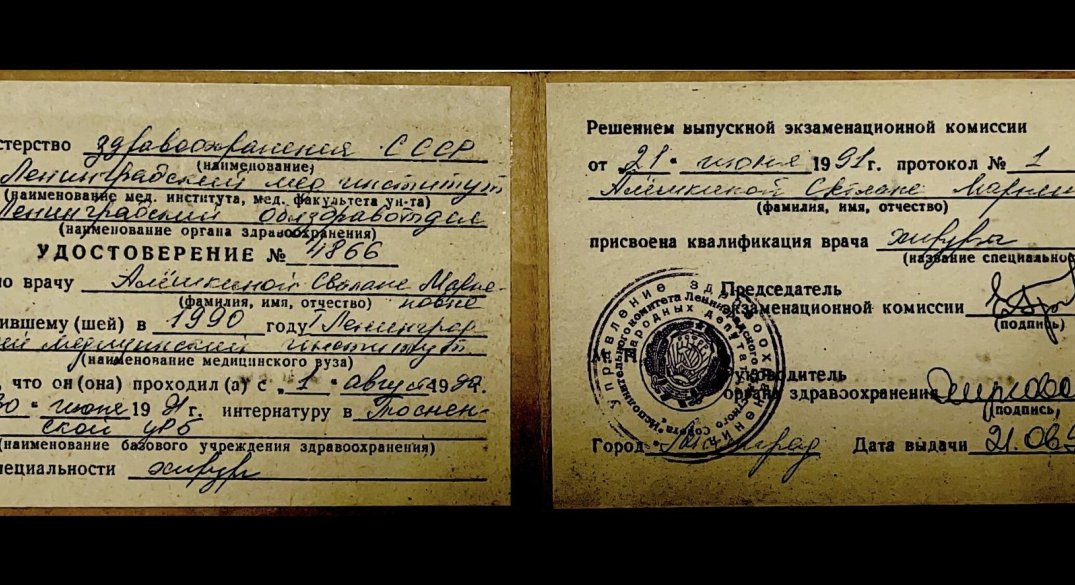 стерство здравоохранения СССР
(наименование)
Ленинградский мед институт
(наименование мед. института, мед. факультета ун-та)
Ленинградский облздравотдел
(наименование органа здравоохранения)
УДОСТОВЕРЕНИЕ № 4866
но врачу Алёшкиной Светлане Марке-
(фамилия, имя, отчество) новне
ившему (шей) в 1990 году I Ленинград
медицинский институт
(наименование медицинского вуза)
, что он (она) проходил (а) с „1“ август 1990г.
30“ июне 1991г. интернатуру в Тоснен-
ской ЦРБ
(наименование базового учреждения здравоохранения)
пециальности хирург
Решением выпускной экзаменационной комиссии
от 21“ июня 1991г. протокол № 1
Алёшкиной Светлане
(фамилия, имя, отчество)
присвоена квалификация врача хирурга
(название специальнос
Председатель
экзаменационной комиссии
(подпись)
М П
Руководитель
органа здравоохранения
(подпись,
Город Ленинград Дата выдачи 21.06.9
Управление здравоохранения
исполнительного комитета Ленинградского областного Совета
народных депутатов